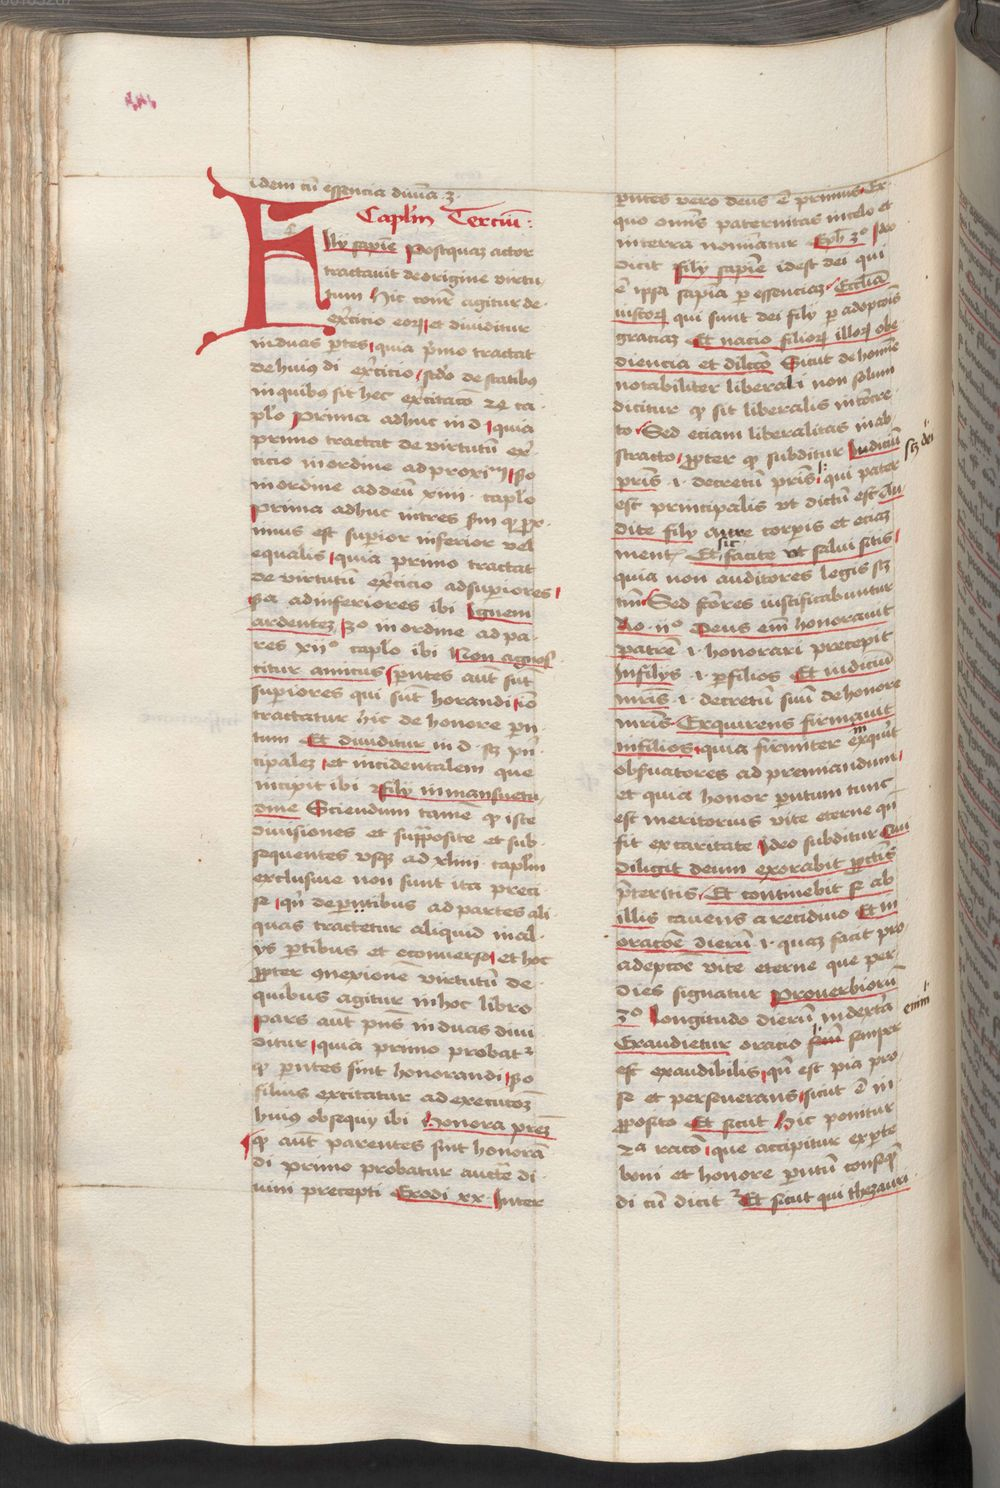 idem cū essencia diuīa ·3·
Caplm̄ Terciū:
Filÿ sapīe Postquaꝫ actor
tractauit de origine virtu
tum hic cōnr̄ agitur de
ex̄citio eoꝝ et diuiditur
in duas p̄tes quia p̄mo tractat
de huius di ex̄citio sc̄do de statibꝰ
in quibus sit hec exc̄itac̄o 24 ca
plo Prima adhuc in d quia
primo tractat de virtutū ex̄
citio in ordine ad proxīm so
in ordine ad deū xiiii · caplo
prima adhuc in tres sm̄ ꝙ ꝓx
imus est sup̄ior inferior vel
equalis quia primo tractat
de virtutū ex̄citio ad sup̄iores
so ad inferiores ibi Ignem
ardenteꝫ 3º in ordine ad pa
res xiiº caplo ibi Non agnos
titur amicus p̄ntes aūt sūt
sup̄iores qui sūt honorandi iō
tractatur hic de honore p̄n
tum Et diuiditur in d · sꝫ p̄n
cipaleꝫ et incidentalem que
incipit ibi Fily in mansuetu
dine Sciendum tamē ꝙ iste
diuisiones et supposite et sub
sequentes vsqꝫ ad xliiii caplm̄
exclusiue non sunt ita preci
se qn̄ de p̄ntibus ad partes ali
quas tractetur aliquid in al
ÿs p̄tibus et econuerso et hoc
ꝓpter ꝯnexione virtutū de
quibus agitur in hoc libro
pars aūt pn̄s in duas diui
ditur quia primo probatᷣ
ꝙ p̄ntes sint honorandi so
filius excitatur ad executōꝫ
huiꝰ obsequÿ ibi Honora preꝫ
ꝙ aut parentes sint honorā
di primo probatur auctē di
uini precepti Exodi xx · Inter
p̄ntes vero deus ē primus Ex
quo omīs paternitas in celo et
in terra nominatur Eph̄ 3º Ideo
dicit fily sapīe idest dei qui
ē ip̄sa sapīa ꝑ essenciaꝫ Eccl̄ia
iustoꝝ qui sunt dei filÿ ꝑ adoptōis
graciaꝫ Et nacio filioꝝ illoꝝ obe
diencia et dilc̄co Sicut de homīe
notabiliter liberali non solum
dicitur ꝙ sit liberalis in cōcre
to Sed eciam liberalitas in ab
stracto ꝓpter ꝙ subditur Iudiciū
p̄ris · i · decretū p̄ris sꝫ dei qui pater
est principalis vt dictū est Au
dite fily aure corpis et eciaꝫ
ment̄ Et sic facite vt salui sitis
quia non auditores legis sꝫ
tm̄ Sed fc̄ores iustificabuntur
Ro · iiº Deus em̄ honorauit
patrē · i · honorari precepit
in filÿs · i · ꝑ filios Et iudiciū
mr̄is · i · decretū suū de honore
mr̄is Exquirens firmauit
in filios quia firmiter exquīt
obs̄uatores ad premiandum
et quia honor p̄ntum tunc
est meritorius vite eterne qn̄
fit ex caritate Ideo subditur Qui
diligit deum exorabit ꝓ pctīs
p̄teritis Et continebit se ab
illis cauens a recidiuo Et in
oracōe dierū · i · quaꝫ facit pro
adepcōe vite eterne que per
dies signatur Prouerbiorū
3º Longitudo dierū in dext̄a
Exaudietur oracio enim semper
est exaudibilis qn̄ est pia pro
se et perseuerans sicut ē in
ꝓposito Et sicut Hic ponitur
2a racō que accipitur ex p̄te
boni et honore p̄ntū consequē
di cū dicit Et sicut qui thezauri